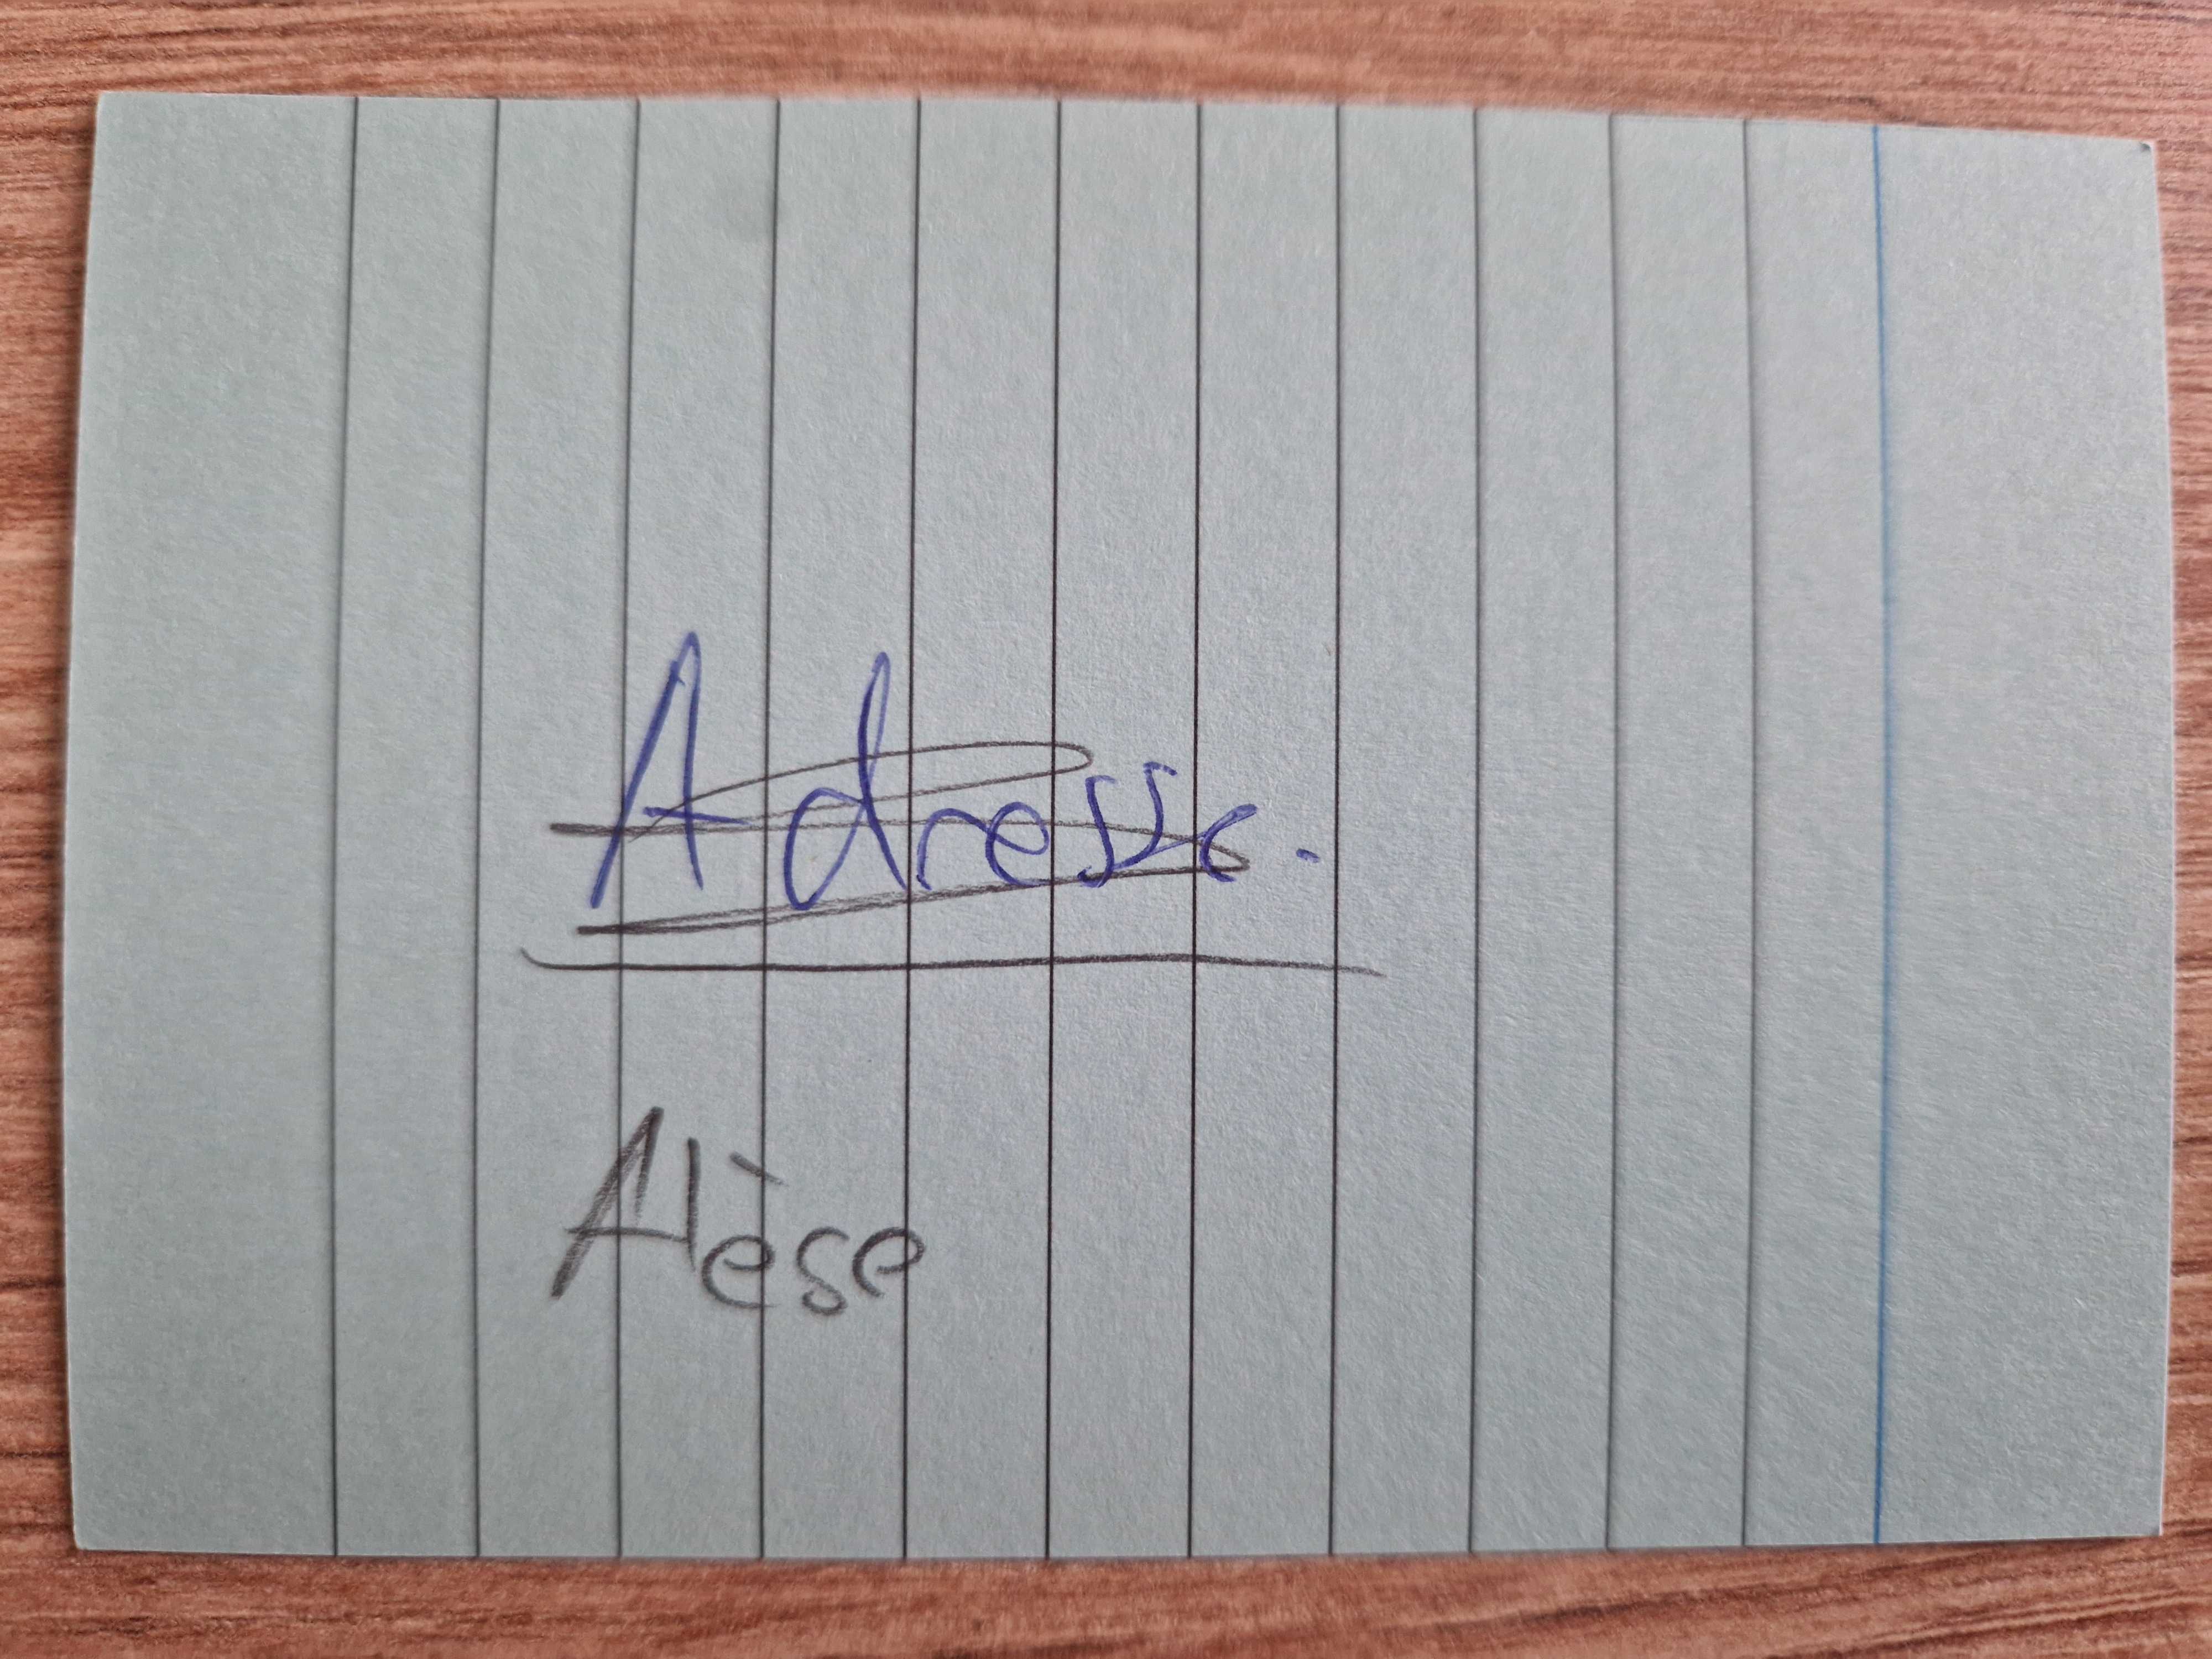 Adresse.
Alèse